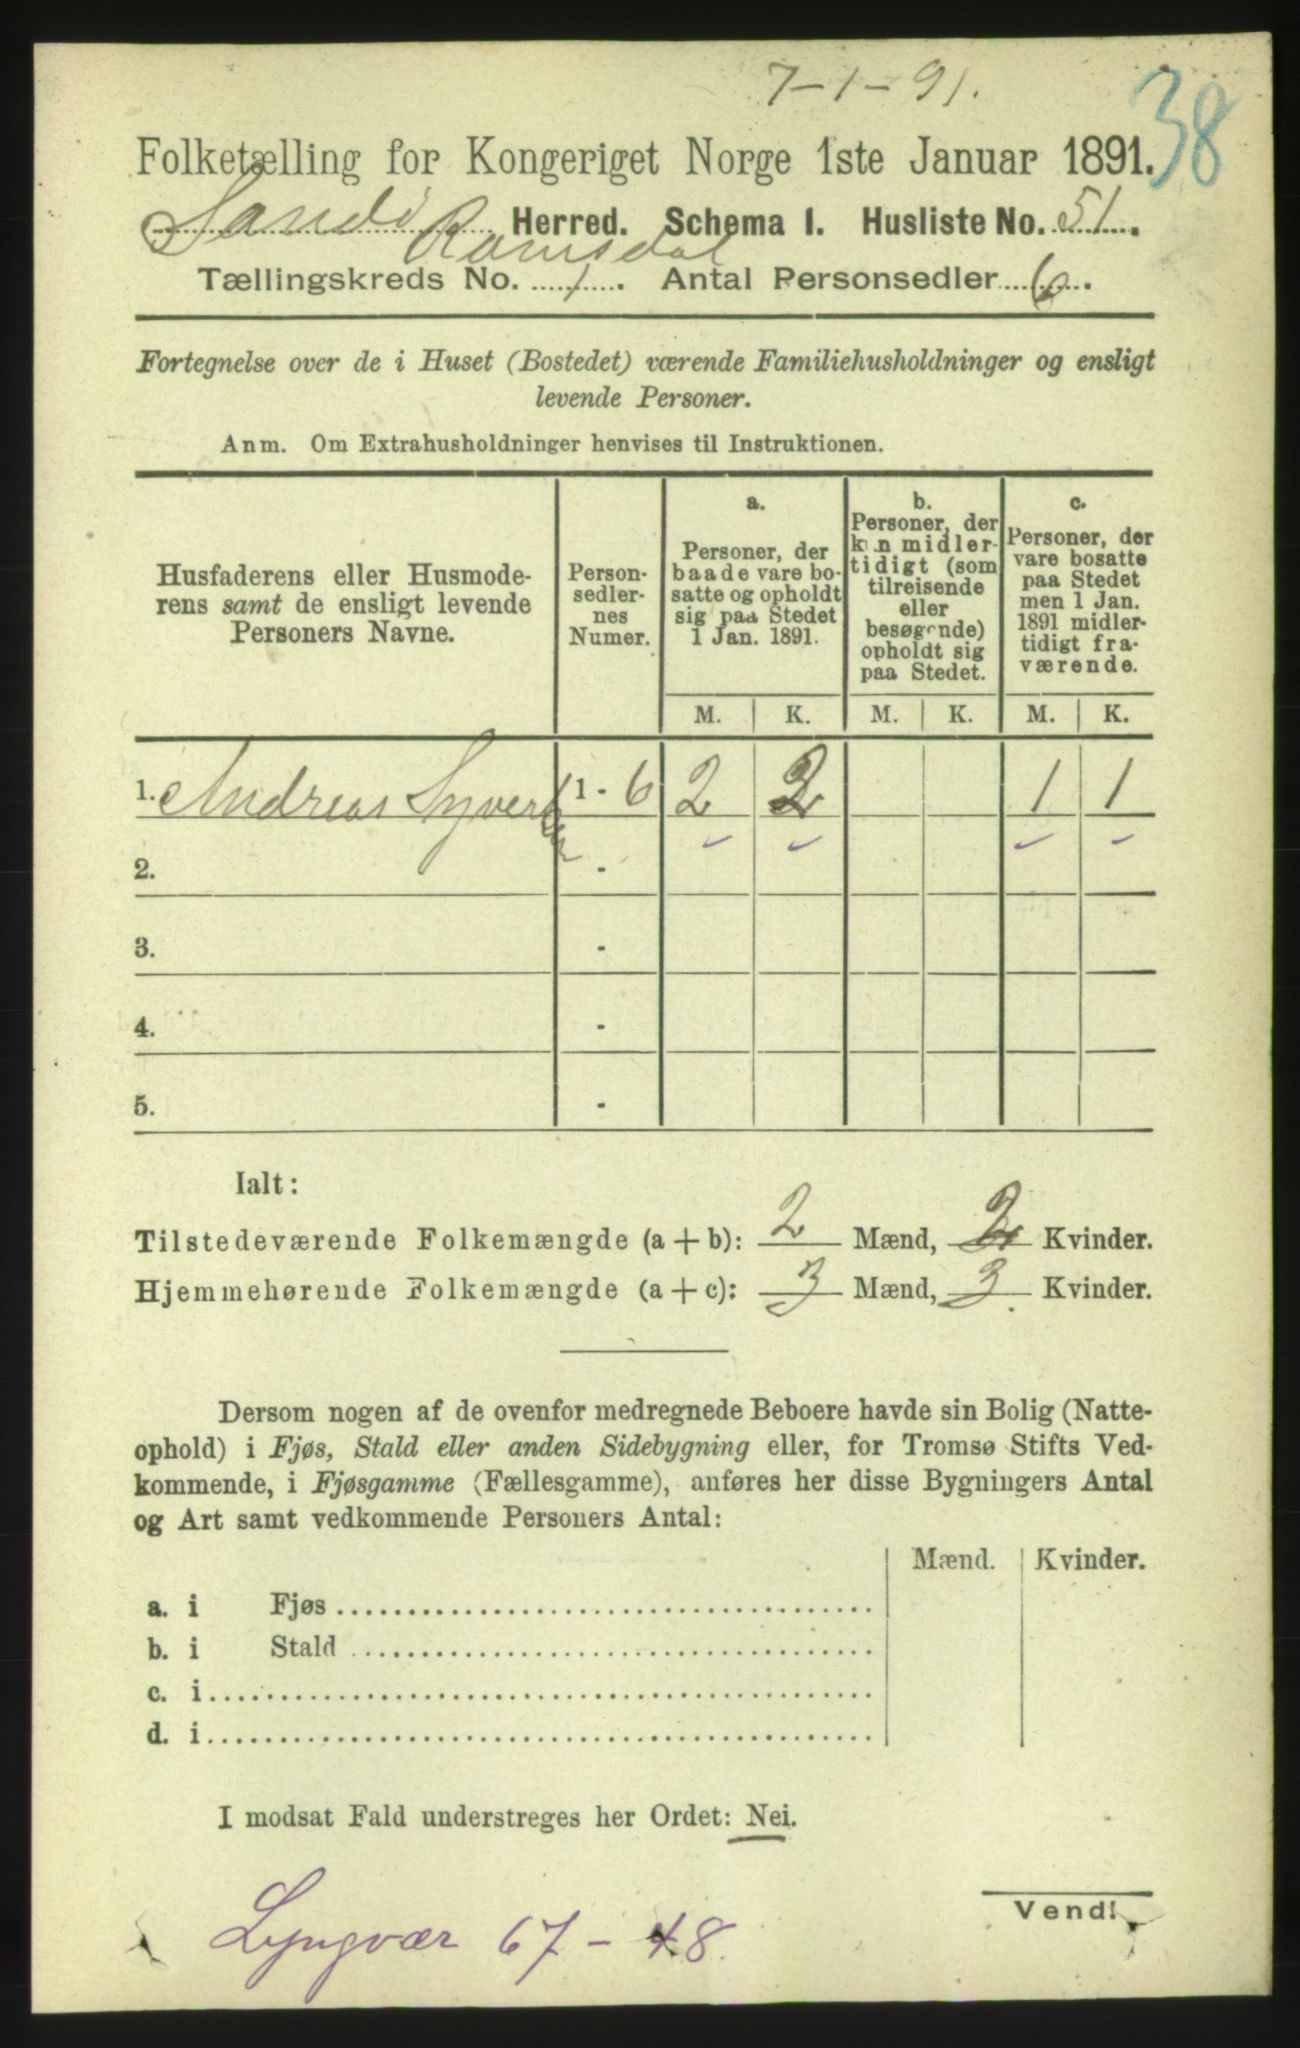 7-1-91.
38
Folketælling for Kongeriget Norge 1ste Januar 1891.
Sand i Herred. Schema 1. Husliste No. 51.
Romsdal
Tællingskreds No. 1. Antal Personsedler 6.
Fortegnelse over de i Huset (Bostedet) værende Familiehusholdninger og ensligt
levende Personer.
Anm. Om Extrahusholdninger henvises til Instruktionen.
Husfaderens eller Husmode-
rens samt de ensligt levende
Personers Navne.
Person-
sedler-
nes
Numer.
a.
Personer, der
baade vare bo-
satte og opholdt
sig paa Stedet
1 Jan. 1891.
b.
Personer, der
kun midler-
tidigt (som
tilreisende
eller
besøgende)
opholdt sig
paa Stedet.
c.
Personer, der
vare bosatte
paa Stedet
men 1 Jan.
1891 midler-
tidigt fra-
værende.
M. K. M. K. M. K.
1. Andreas Syversen 1 - 6 2 2 1 1
2. -
3. -
4. -
5. -
Ialt:
Tilstedeværende Folkemængde (a + b): 2 Mænd, 2 Kvinder.
Hjemmehørende Folkemængde (a + c): 3 Mænd, 3 Kvinder.
Dersom nogen af de ovenfor medregnede Beboere havde sin Bolig (Natte-
ophold) i Fjøs, Stald eller anden Sidebygning eller, for Tromsø Stifts Ved-
kommende, i Fjøsgamme (Fællesgamme), anføres her disse Bygningers Antal
og Art samt vedkommende Personers Antal:
Mænd. Kvinder.
a. i Fjøs
b. i Stald
c. i
d. i
I modsat Fald understreges her Ordet: Nei.
Vend!
Lyngvær 67 - 48.